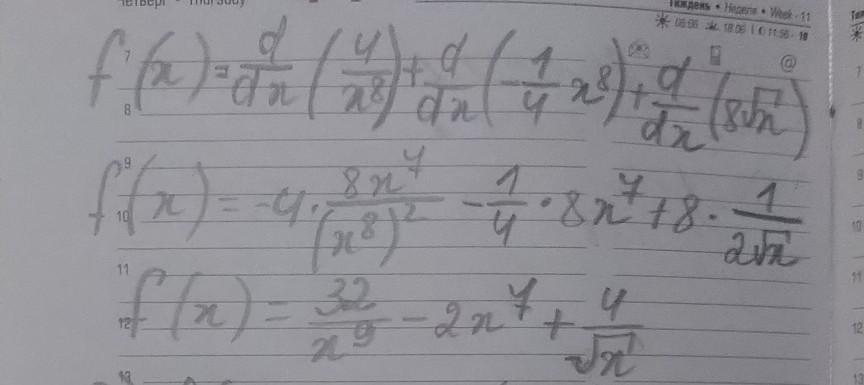 Четверг • Thursday
Тиждень • Неделя • Week - 11
7
8
f'(x) = d/dx (4/x⁸) + d/dx (-1/4 x⁸) + d/dx (8√x)
9
10
f'(x) = -4 · 8x⁷/(x⁸)² - 1/4 · 8x⁷ + 8 · 1/2√x
11
12
f'(x) = 32/x⁹ - 2x⁷ + 4/√x
13